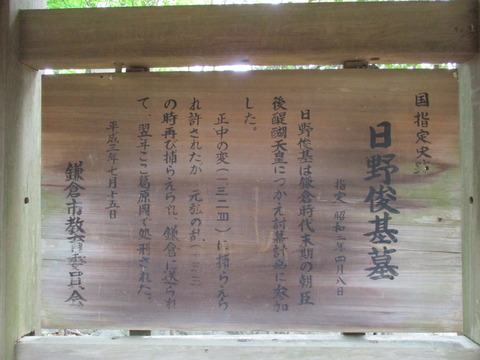 国指定史跡
日野俊基墓
指定 昭和二年四月八日
日野俊基は鎌倉時代末期の朝臣
後醍醐天皇につかえ討幕計画に参加
した。
正中の変(一三二四)に捕らえら
れ許されたが、元弘の乱(一三三
の時再び捕らえられ、鎌倉に送られ
て、翌年ここ葛原岡で処刑された。
平成三年七月十五日
鎌倉市教育委員会